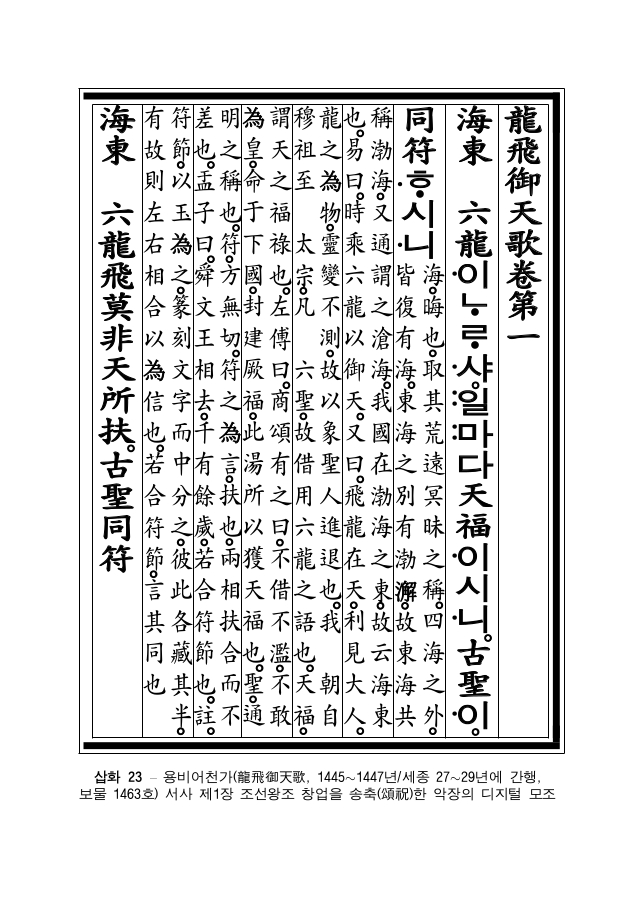 龍飛御天歌卷第一
海東 六龍·이ᄂᆞᄅᆞ·샤:일:마다天福·이시·니。古聖·이。
同符·ᄒᆞ시·니
海。晦也。取其荒遠冥昧之稱。四海之外。
皆復有海。東海之別有渤澥。故東海共
稱渤海。又通謂之滄海。我國在渤海之東。故云海東
也。易曰。時乘六龍以御天。又曰。飛龍在天。利見大人。
龍之為物。靈變不測。故以象聖人進退也。我 朝自
穆祖至 太宗。凡 六聖。故借用六龍之語也。天福。
謂天之福祿也。左傳曰。商頌有之曰。不借不濫。不敢
為皇。命于下國。封建厥福。此湯所以獲天福也。聖通
明之稱也。符。方無切。符之為言。扶也。兩相扶合而不
差也。孟子曰。舜文王相去。千有餘歲。若合符節也。註。
符節。以玉為之。篆刻文字而中分之。彼此各藏其半。
有故則左右相合以為信也。若合符節。言其同也
海東 六龍飛莫非天所扶。古聖同符
삽화 23 – 용비어천가(龍飛御天歌, 1445~1447년/세종 27~29년에 간행,
보물 1463호) 서사 제1장 조선왕조 창업을 송축(頌祝)한 악장의 디지털 모조